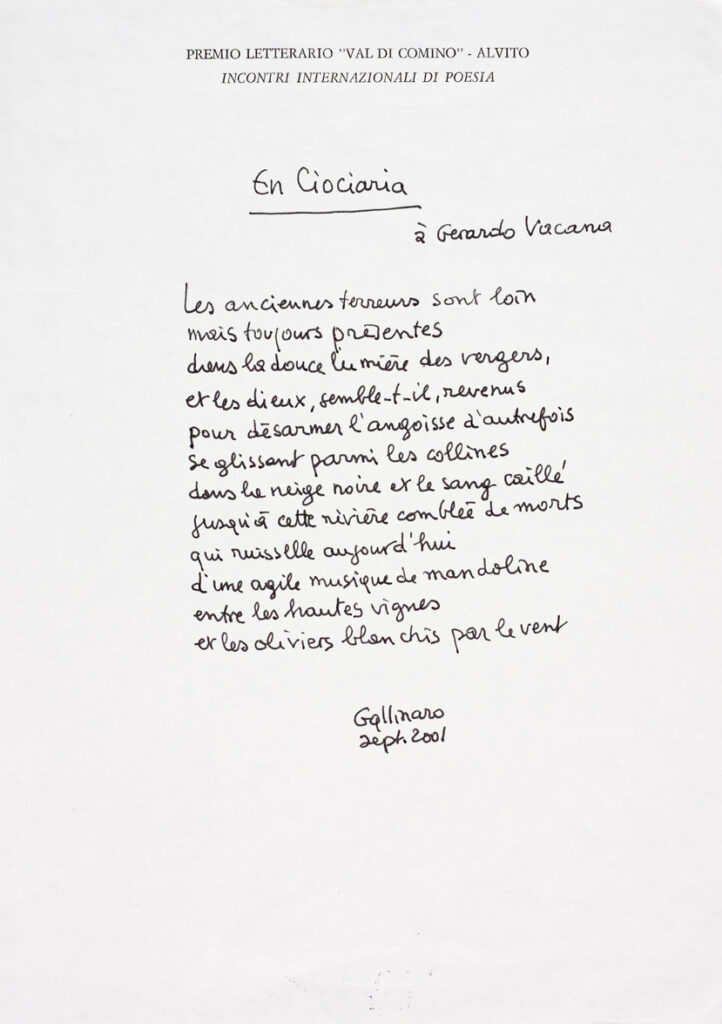 PREMIO LETTERARIO "VAL DI COMINO" - ALVITO
INCONTRI INTERNAZIONALI DI POESIA
En Ciociaria
à Gerardo Vacana
Les anciennes terreurs sont loin
mais toujours présentes
dans la douce lumière des vergers,
et les dieux, semble-t-il, revenus
pour désarmer l'angoisse d'autrefois
se glissent parmi les collines
dans la neige noire et le sang caillé
jusqu'à cette rivière comblée de morts
qui ruisselle aujourd'hui
d'une agile musique de mandoline
entre les hautes vignes
et les oliviers blanchis par le vent
Gallinaro
sept. 2001